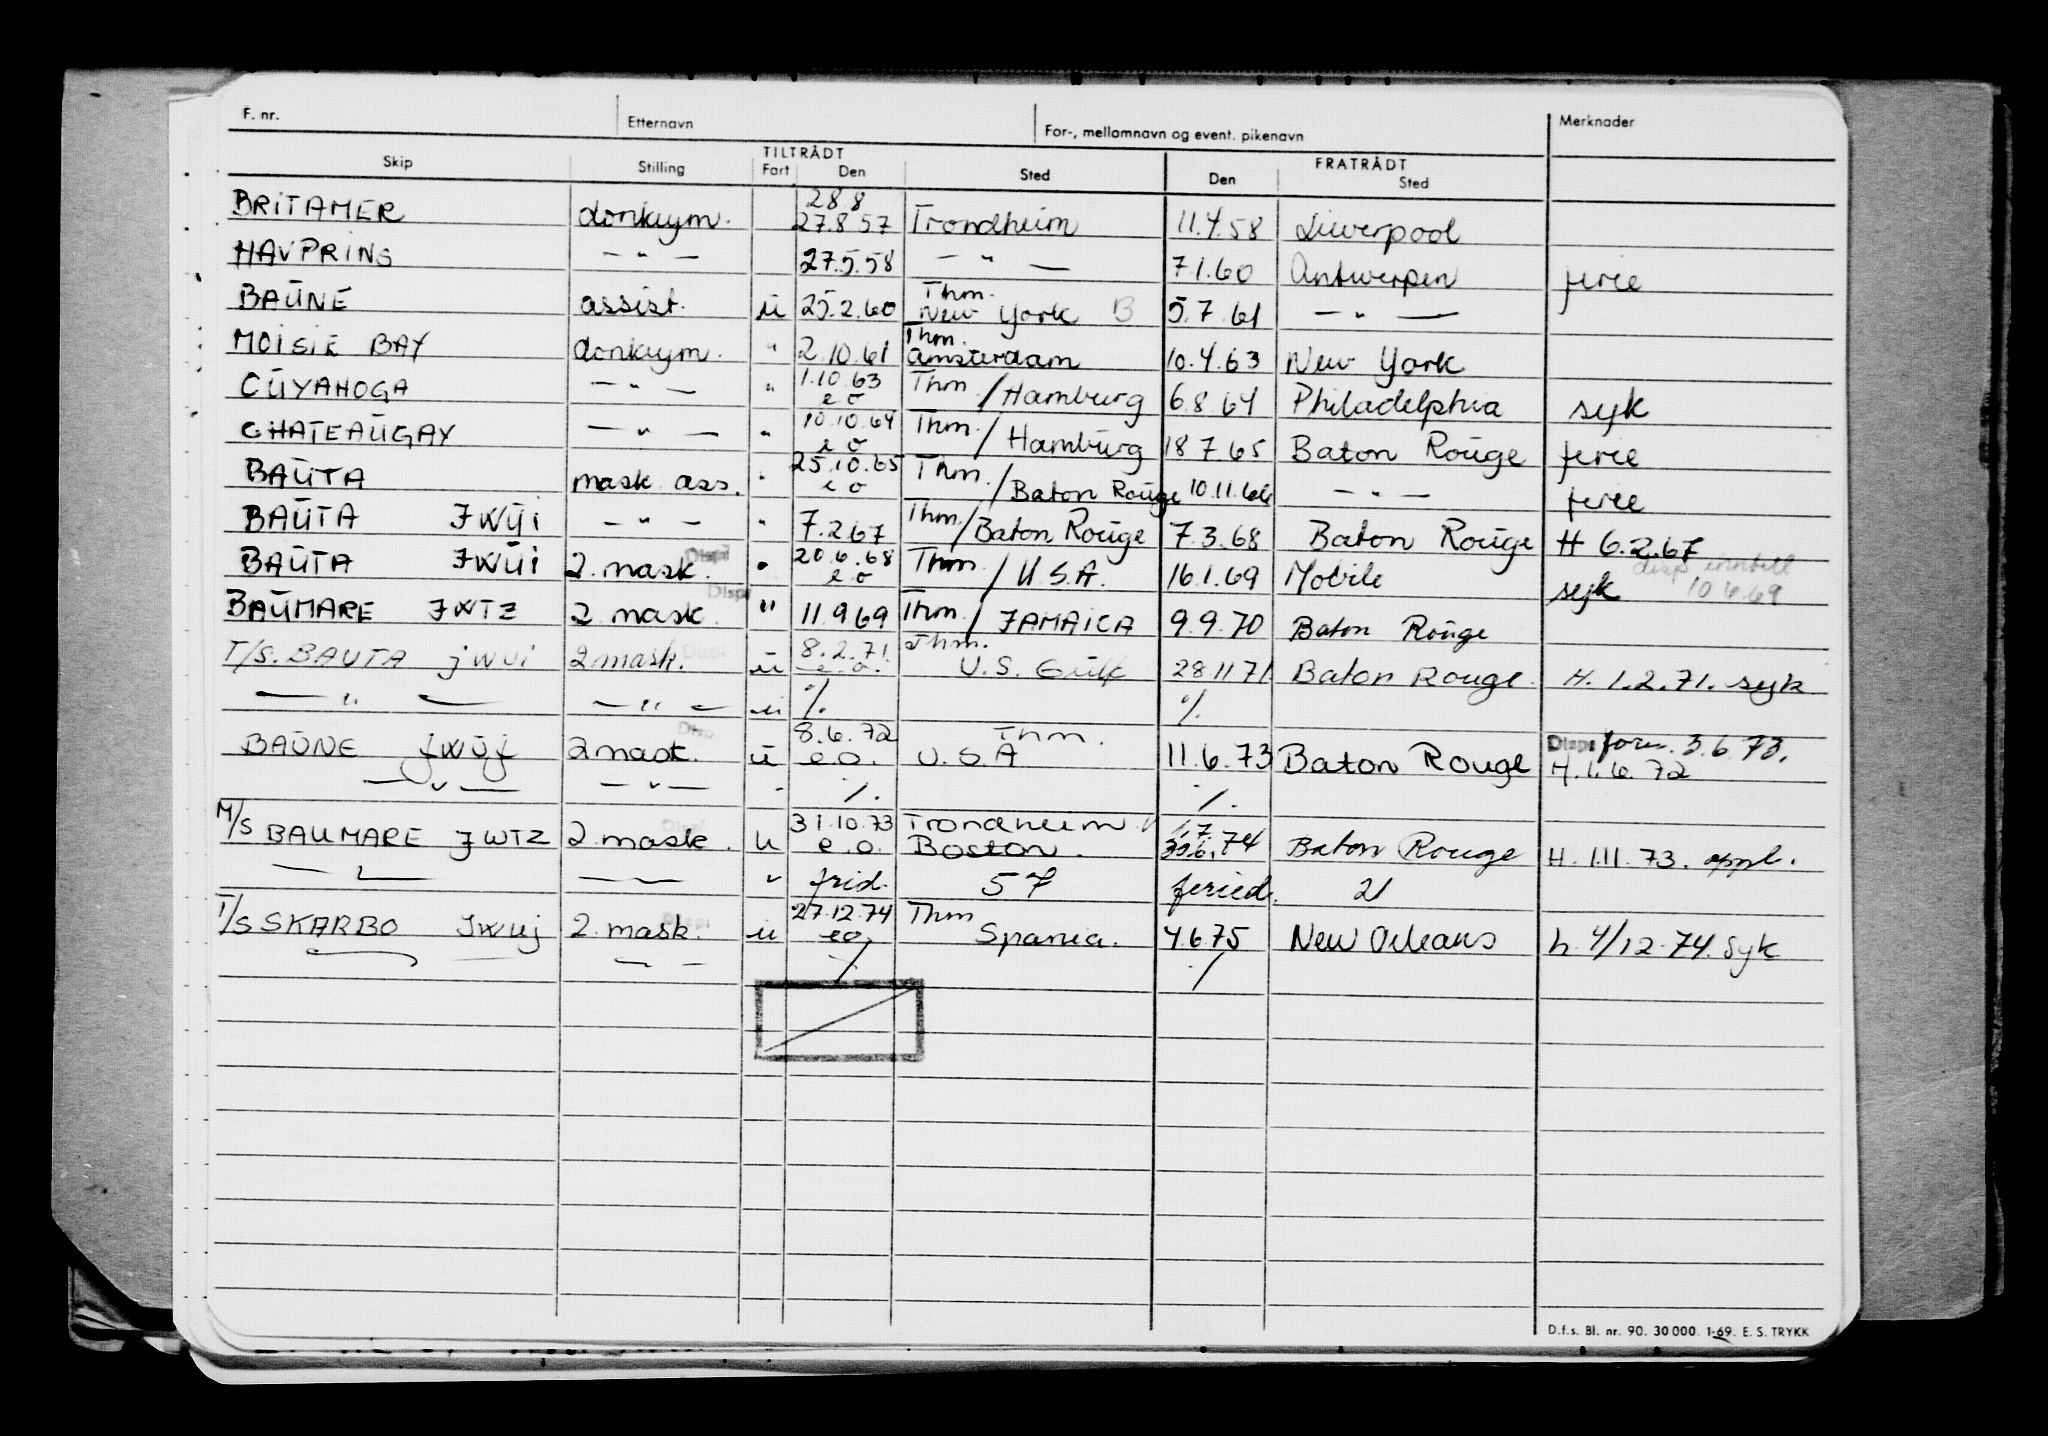 F. nr. Etternavn For-, mellomnavn og event. pikenavn Merknader
TILTRÅDT FRATRÅDT
Skip Stilling Fart Den Sted Den Sted
28.8
BRITAMER donkym. 27.8 57 Trondheim 11.4.58 Liverpool
HAVPRINS — " — 27.5.58 — " — 7.1.60 Antwerpen ferie
Thm.
BAUNE assist. u 25.2.60 New York B 5.7.61 — " —
Thm.
MOISIE BAY donkym. " 2.10.61 Amsterdam 10.4.63 New York
CUYAHOGA — " — " 1.10.63 Thm / Hamburg 6.8.64 Philadelphia syk
e o
CHATEAUGAY — " — " 10.10.64 Thm. / Hamburg 18 7.65 Baton Rouge ferie
e o
BAUTA mask ass. " 25.10.65 Thm. / Baton Rouge 10.11.66 — " — ferie
e o
BAUTA JWUI — " — " 7.2.67 Thm. / Baton Rouge 7.3.68 Baton Rouge H 6.2.67
BAUTA JWUI 2. mask. Disp " 20.6.68 Thm. / U.S.A. 16.1.69 Mobile syk disp inntill 10.4.69
e o
BAUMARE JWTZ 2 mask. Disp " 11.9.69 Thm. / JAMAICA 9.9.70 Baton Rouge
T/S. BAUTA JWUI 2 mask. Disp u 8.2.71 Thm. U.S. Gulf 28.11.71 Baton Rouge. H. 1.2.71. syk
e.o.
— " — — " — u %. %.
BAUNE JWUJ 2 mask. Disp. u 8.6.72 Thm. 11.6.73 Baton Rouge Disp form. 3.6.73.
e.o. U.S.A H. 1.6.72
— " — — " — " %. %.
M/S BAUMARE JWTZ 2 mask. Disp u 31.10.73 Trondheim 1.7.
e.o. Boston. 30.6.74 Baton Rouge H. 1.11.73. oppl.
— " — — " frid. 57 feried. 21
T/S SKARBO JWUJ 2. mask. Disp u 27.12.74 Thm
eo Spania. 4.6.75 New Orleans h. 4/12.74. Syk
— — % %
D.f.s. Bl. nr. 90. 30 000. 1-69. E. S. TRYKK